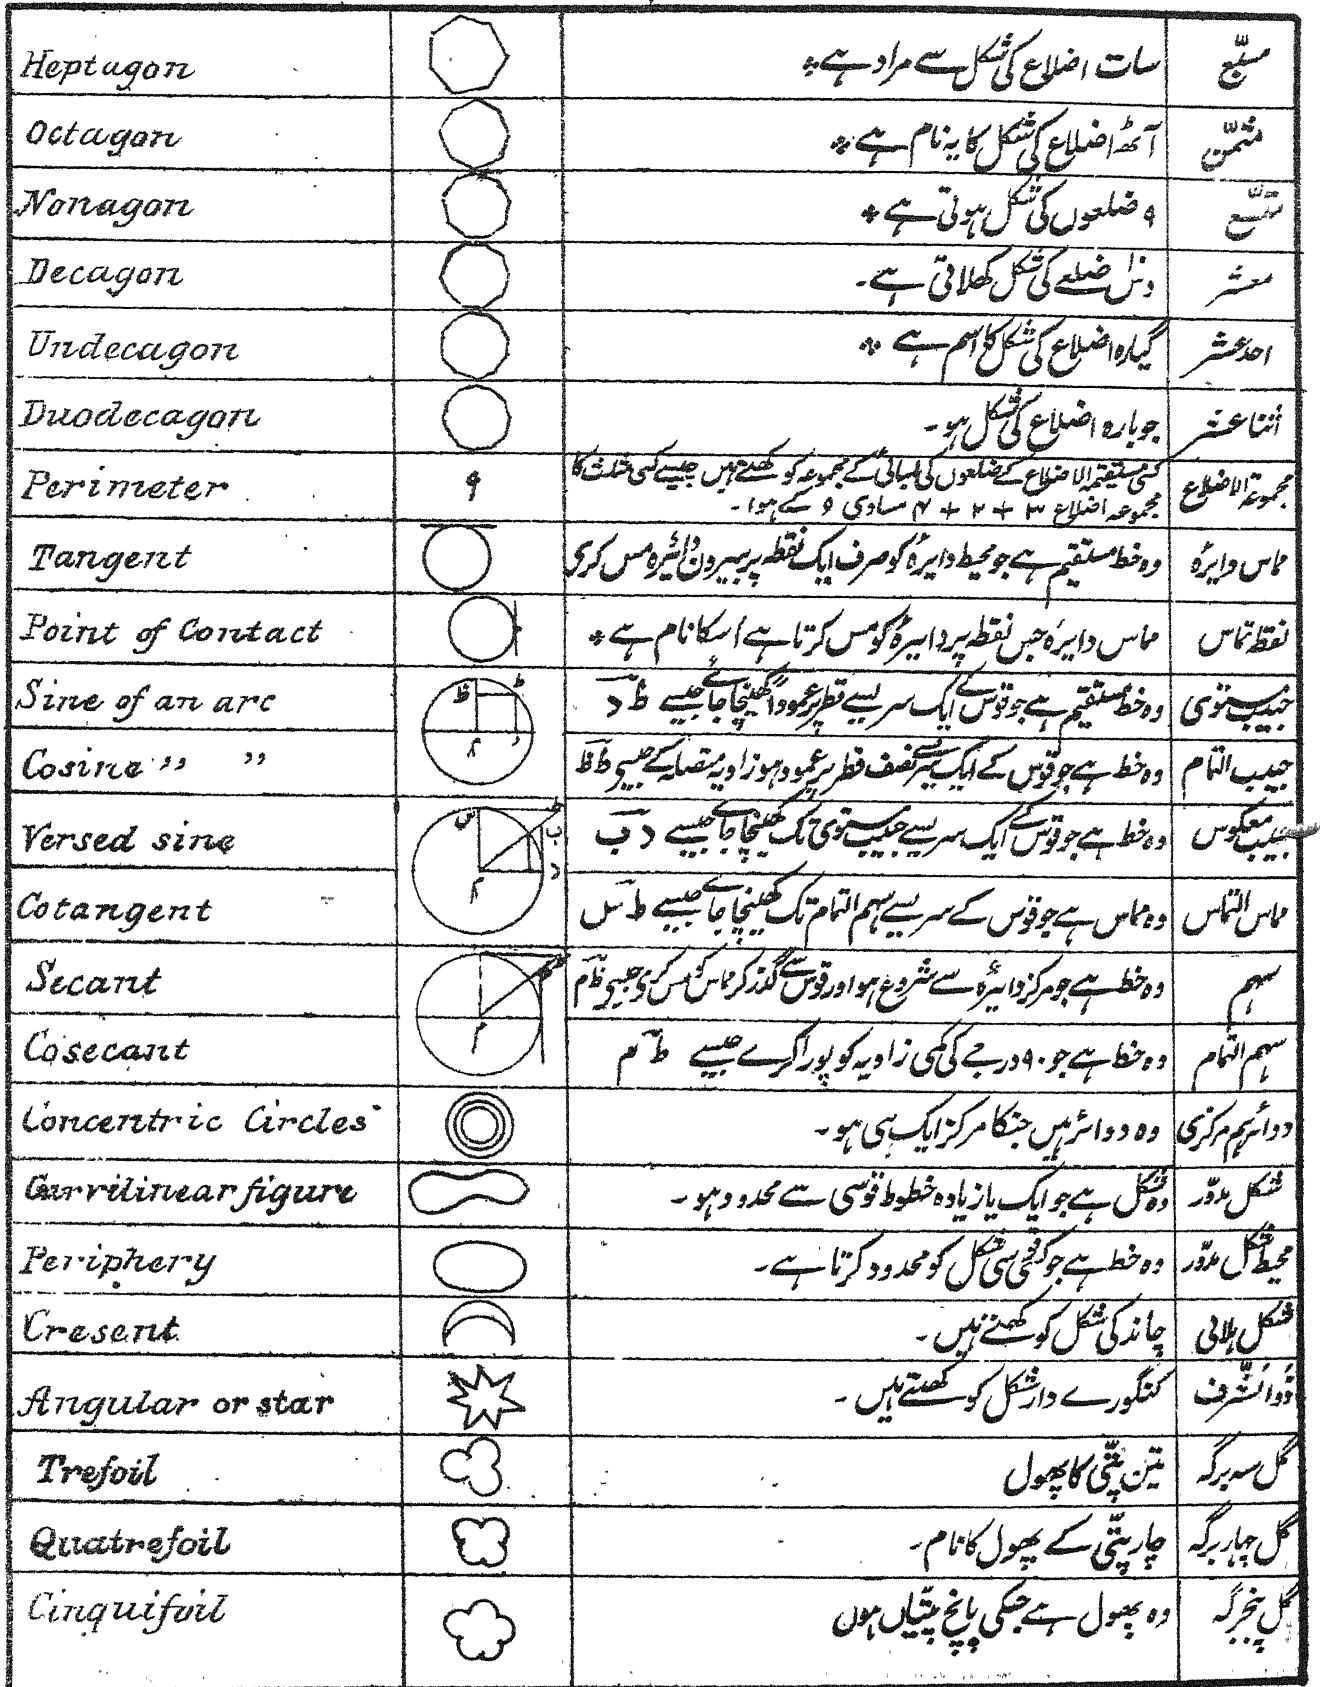 Heptagon سات اضلاع کی شکل سے مراد ہے مسبّع
Octagon آٹھ اضلاع کی شکل کا یہ نام ہے مثمّن
Nonagon ۹ ضلعوں کی شکل ہوتی ہے متسّع
Decagon دس ضلعے کی شکل کھلاتی ہے۔ معشر
Undecagon گیارہ اضلاع کی شکل کا اسم ہے احد عشر
Duodecagon جو بارہ اضلاع کی شکل ہو۔ اثنا عشر
Perimeter ۹ کسی مستقیمۃ الاضلاع کے ضلعوں کی لمبائی کے مجموعہ کو کھتے ہیں جیسے کسی مثلث کا مجموعۃ الاضلاع
مجموعہ اضلاع ۳ + ۲ + ۴ مساوی ۹ کے ہوا۔
Tangent وہ خط مستقیم ہے جو محیط دایرۂ کو صرف ایک نقطہ پر بیرون دائیرہ مس کری مماس دایرۂ
Point of Contact مماس دایرۂ جس نقطہ پر دایرۂ کو مس کرتا ہے اسکا نام ہے نقطہ تماس
Sine of an arc ظ ط م د وہ خط مستقیم ہے جو قوس کے ایک سر سے قطر پر عموداً کھینچا جائے جیسے ط د جیب مستوی
Cosine ,, ,, وہ خط ہے جو قوس کے ایک سر سے نصف قطر پر عمود ہو زاویہ متصلہ کے جیسے ط ظ جیب التمام
Versed sine س ط ب د م وہ خط ہے جو قوس کے ایک سر سے جیب مستوی تک کھینچا جائے جیسے د ب جیب معکوس
Cotangent وہ مماس ہے جو قوس کے سر سے سہم التمام تک کھینچا جائے جیسے ط س مماس التماس
Secant م وہ خط ہے جو مرکز دایرۂ سے شروع ہو اور قوس سے گذر کر مماس کو مس کری جیسے ظ م سہم
Cosecant وہ خط ہے جو ۹۰ درجے کی کمی زاویہ کو پورا کرے جیسے ط م سہم التمام
Concentric Circles وہ دوائر ہیں جنکا مرکز ایک ہی ہو۔ دوائر ہم مرکزی
Curvilinear figure وہ شکل ہے جو ایک یا زیادہ خطوط قوسی سے محدود ہو۔ شکل مدوّر
Periphery وہ خط ہے جو کسی قوسی شکل کو محدود کرتا ہے۔ محیط شکل مدوّر
Cresent چاند کی شکل کو کھتے ہیں۔ شکل ہلالی
Angular or star کنگورے دار شکل کو کھتے ہیں۔ ذوالشّرف
Trefoil تین پتّی کا پھول گل سہ برگہ
Quatrefoil چار پتّی کے پھول کا نام۔ گل چہار برگہ
Cinquifoil وہ پھول ہے جسکی پانچ پتّیاں ہوں گل پنجبرگہ